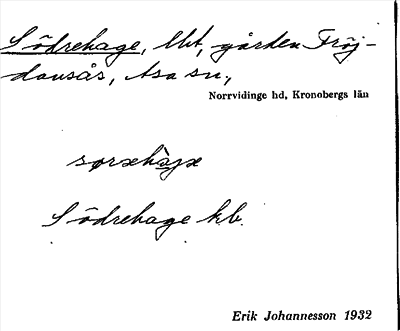 Södrehage, Uht, gården Fröj-
dansås, Asa sn,
Norrvidinge hd, Kronobergs län
sørxhàgx
Södrehage kb.
Erik Johannesson 1932